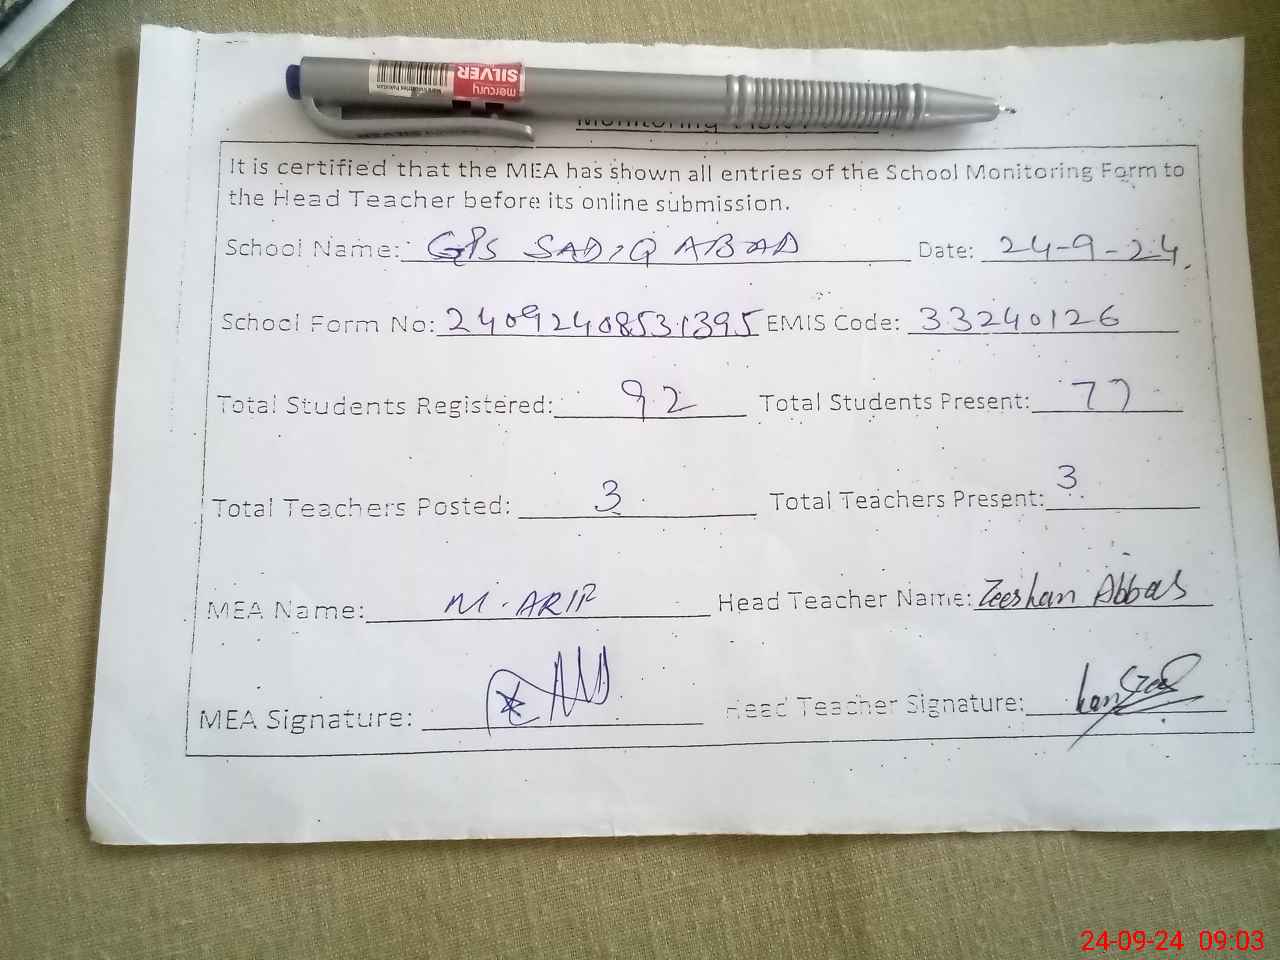 mercury
SILVER
Monitoring
It is certified that the MEA has shown all entries of the School Monitoring Form to
the Head Teacher before its online submission.
School Name: GPS SADIQ ABAD Date: 24-9-24
School Form No: 24092408531395 EMIS Code: 33240126
Total Students Registered: 92 Total Students Present: 77
Total Teachers Posted: 3 Total Teachers Present: 3
MEA Name: M. ARIF Head Teacher Name: Zeeshan Abbas
MEA Signature: Head Teacher Signature:
24-09-24 09:03